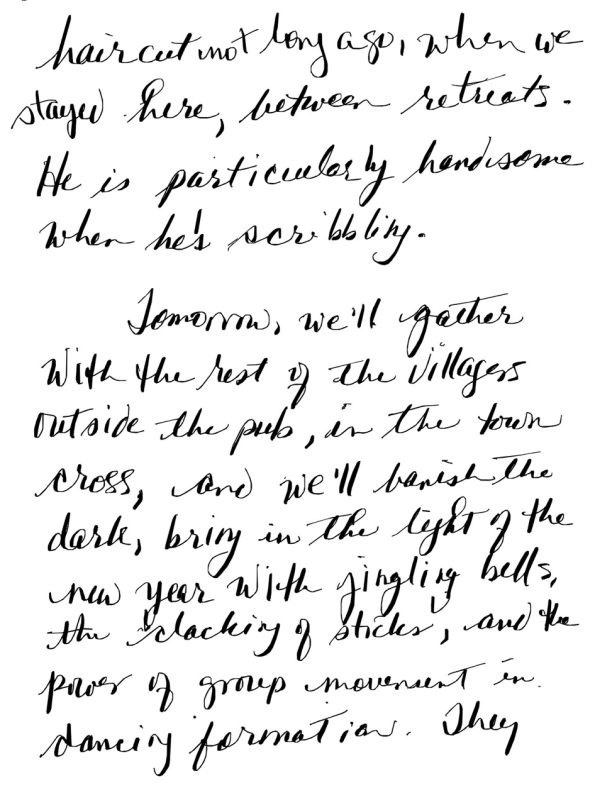 haircut not long ago, when we
stayed here, between retreats.
He is particularly handsome
when he's scribbling.
Tomorrow, we'll gather
with the rest of the villagers
outside the pub, in the town
cross, and we'll banish the
dark, bring in the light of the
new year with jingling bells,
the "clacking of sticks", and the
power of group movement in
dancing formation. They